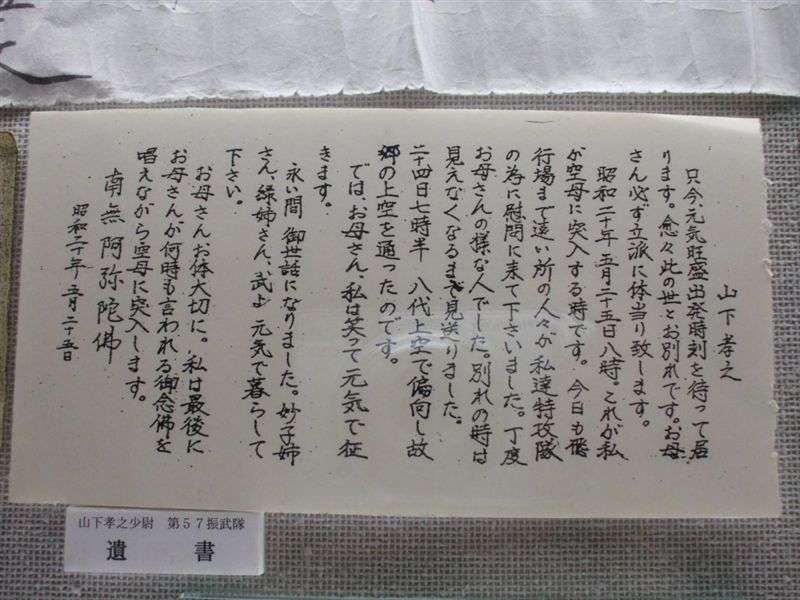 山下孝之
只今、元気旺盛出発時刻を待って居
ります。愈々此の世とお別れです。お母
さん必ず立派に体当り致します。
昭和二十年五月二十五日八時。これが私
が空母に突入する時です。今日も飛
行場まで遠い所の人々が私達特攻隊
の為に慰問に来て下さいました。丁度
お母さんの様な人でした。別れの時は
見えなくなるまで見送りました。
二十四日七時半 八代上空で偏向し故
郷の上空を通ったのです。
では、お母さん、私は笑って元気で征
きます。
永い間 御世話になりました。妙子姉
さん、緑姉さん、武よ 元気で暮らして
下さい。
お母さんお体大切に。私は最後に
お母さんが何時も言われる御念佛を
唱えながら空母に突入します。
南無阿弥陀佛
昭和二十年 五月二十五日
山下孝之少尉 第57振武隊
遺 書